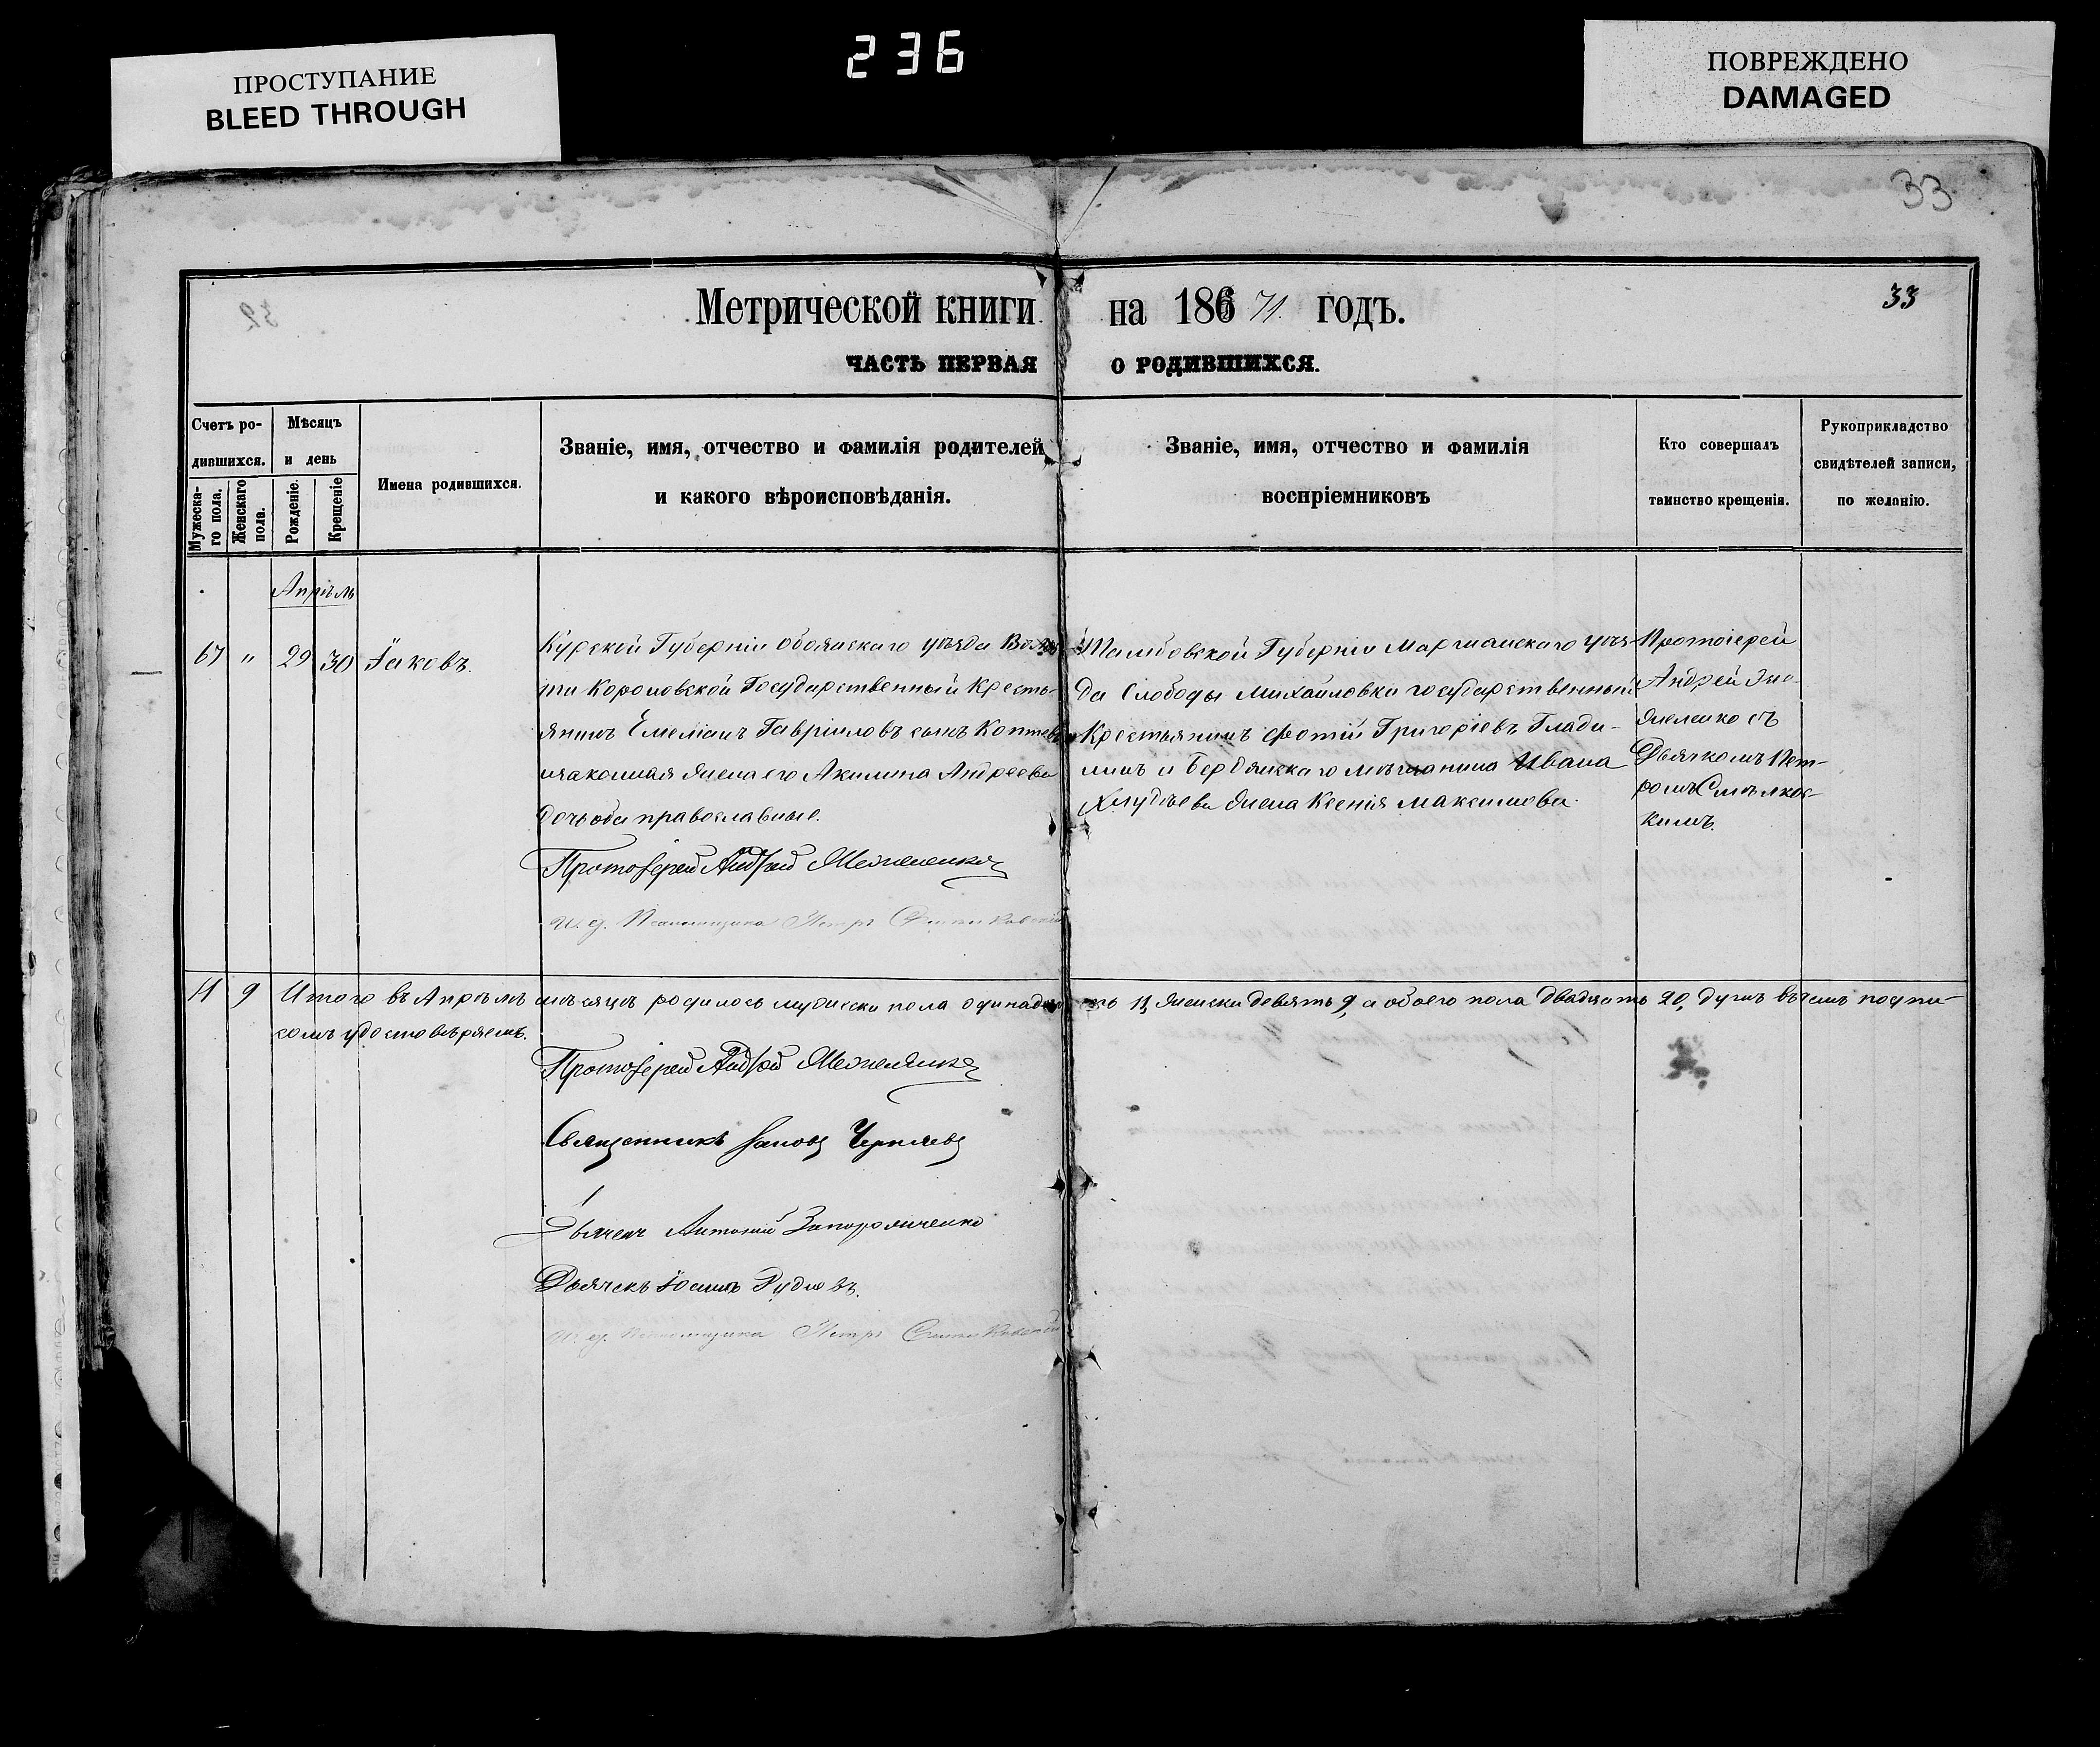 ПРОСТУПАНИЕ
BLEED THROUGH
236
ПОВРЕЖДЕНО
DAMAGED
33
33
Метрической книги на 186 71 годъ.
ЧАСТЬ ПЕРВАЯ О РОДИВШИХСЯ.
Счетъ ро-
дившихся.
Мужеска-
го пола.
Женскаго
пола.
Мѣсяцъ
и день
Рожденіе.
Крещеніе
Имена родившихся.
Званіе, имя, отчество и фамилія родителей
и какого вѣроисповѣданія.
Званіе, имя, отчество и фамилія
воспріемниковъ
Кто совершалъ
таинство крещенія.
Рукоприкладство
свидѣтелей записи,
по желанію.
Апрѣль
67 " 29 30 Іаковъ.
Курской Губерніи Обоянскаго уѣзда Волос-
ти Короловской Государственный Кресть-
янинъ Емеліанъ Гавріиловъ сынъ Коптевъ
изаконная жена его Акилина Андреева
дочь оба православные.
Протоіерей Андрей
И. д. Псаломщика Петръ
Тамбовской Губерніи Моршанскаго уѣз-
да Слободы Михайловки государственный
Крестьянинъ Фотій Григоріевъ Глади-
линъ и Бердянскаго мѣщанина Ивана
жена Ксенія Максимова.
Протоіерей
Андрей
съ
Дьячкомъ Пет-
ромъ
кимъ.
11 9 Итого въ Апрѣлѣ мѣсяцѣ родилось мужеска пола одинадцать 11, женска девять 9, а обоего пола двадцать 20, душъ въ чемъ подпи-
сомъ удостовѣряемъ.
Протоіерей Андрей
Священникъ Іаковъ Черняевъ
Дьячекъ Антоній Запорожченко
Дьячекъ Іосифъ Рудневъ.
И. д. Псаломщика Петръ